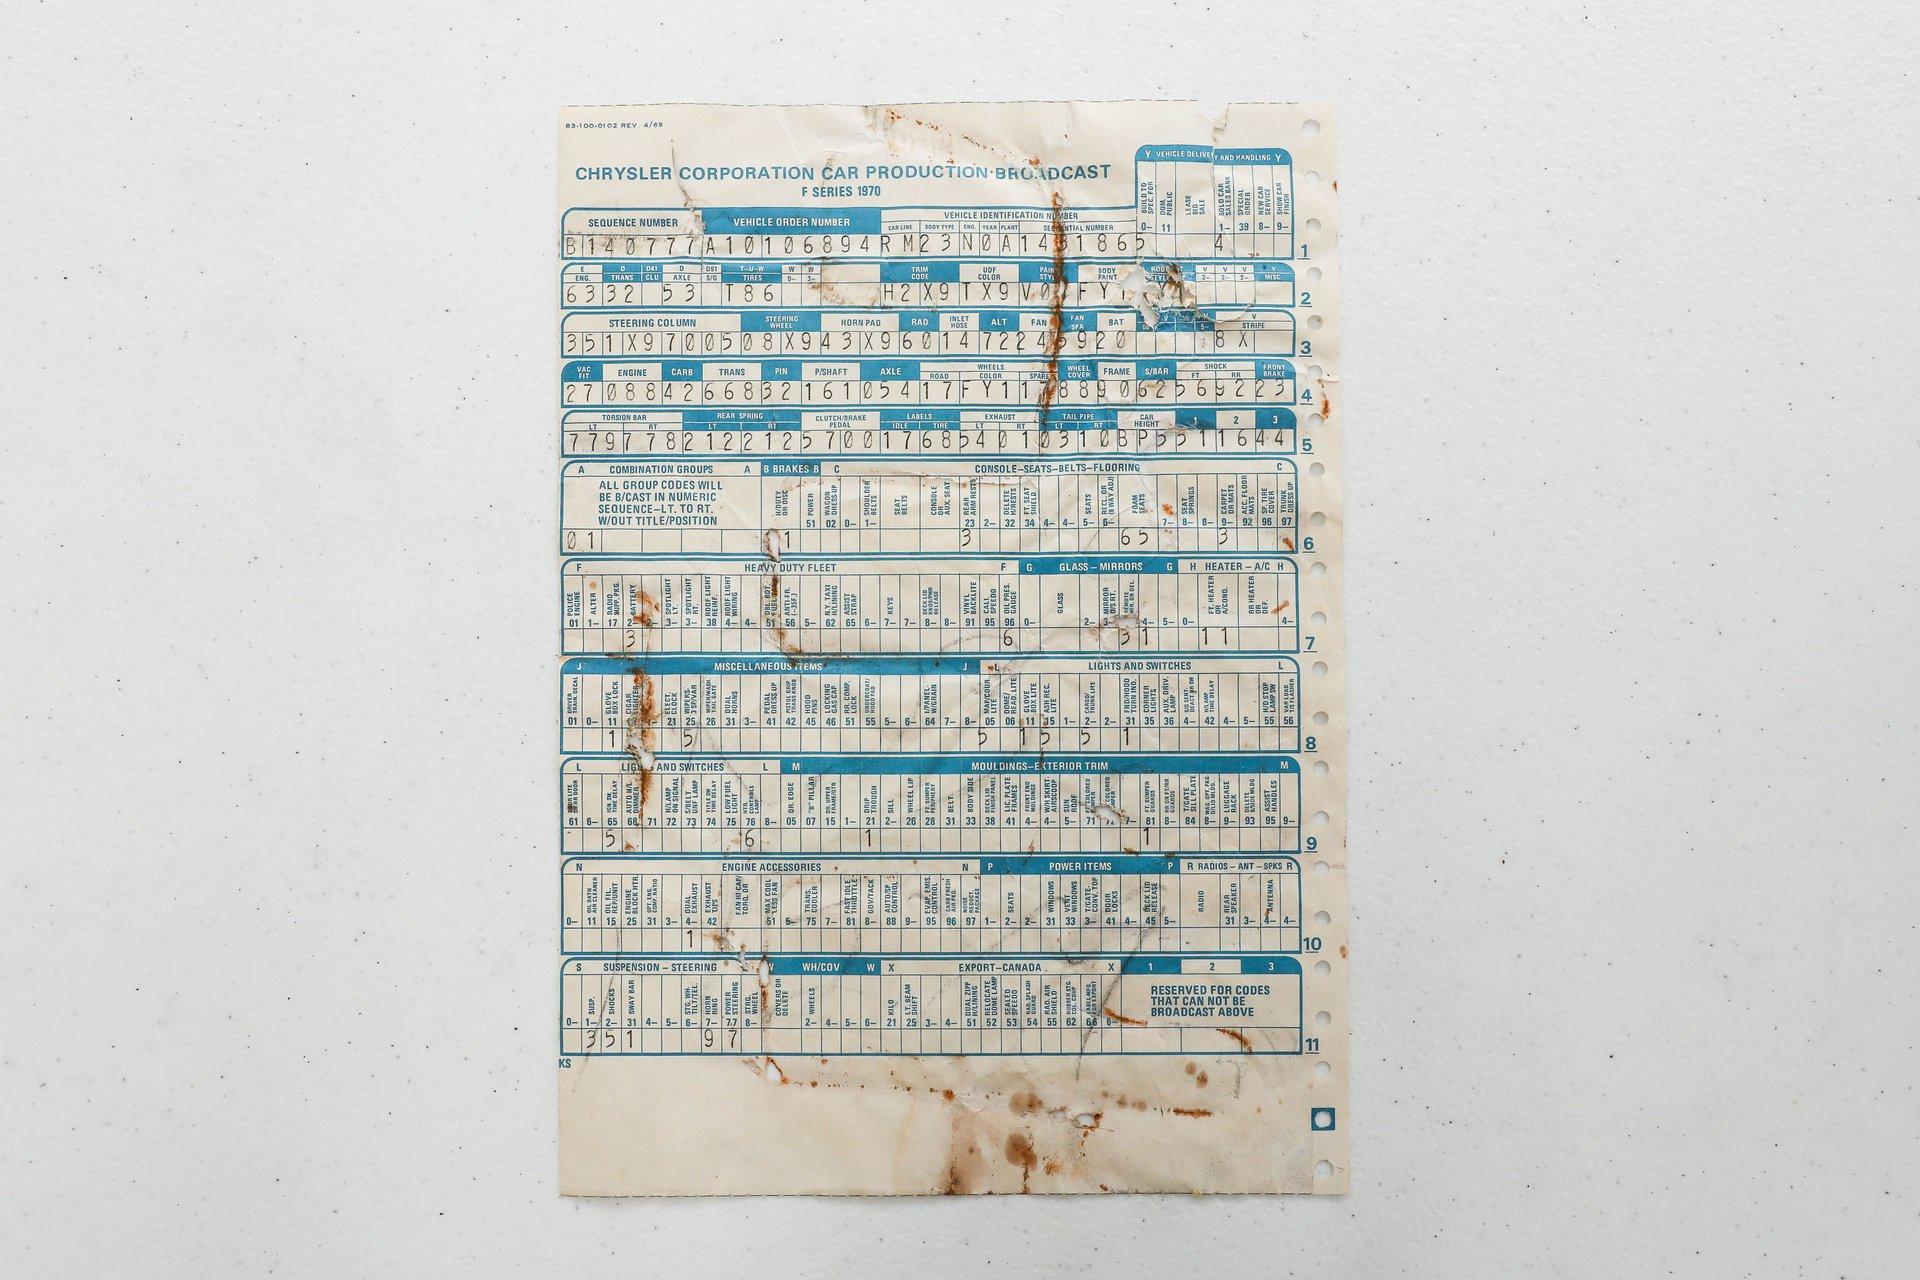 83-100-0102 REV 4/69
CHRYSLER CORPORATION CAR PRODUCTION BROADCAST
F SERIES 1970
Y VEHICLE DELIVERY AND HANDLING Y
BUILD TO SPEC. FOR DOM. PUBLIC LEASE BID SALE SOLD CAR SALES BANK SPECIAL ORDER NEW CAR SERVICE SHOW CAR FINISH
0- 11 1- 39 8- 9-
SEQUENCE NUMBER VEHICLE ORDER NUMBER VEHICLE IDENTIFICATION NUMBER
CAR LINE BODY TYPE ENG. YEAR PLANT SEQUENTIAL NUMBER
B140777 A10106894 RM23N0A1431865 4 1
E D D41 D D91 T-U-W W W TRIM CODE UDF COLOR BODY PAINT V V V Y
ENG. TRANS CLU AXLE S/G TIRES 0- 3- 2- 2- 2- MISC.
6332 53 T86 H2X9 TX9 V0 FY 2
STEERING COLUMN STEERING WHEEL HORN PAD RAD INLET HOSE ALT FAN FAN SPA BAT V STRIPE
351X9700508X943X96014722 8X 3
VAC FIT ENGINE CARB TRANS PIN P/SHAFT AXLE WHEELS ROAD COLOR SPARE WHEEL COVER FRAME S/BAR SHOCK FT RR FRONT BRAKE
27088426683216105417FY117889062569223 4
TORSION BAR LT RT REAR SPRING LT RT CLUTCH/BRAKE PEDAL LABELS IDLE TIRE EXHAUST LT RT TAIL PIPE LT RT CAR HEIGHT 1 2 3
7797782122125700176854010310BP5511644 5
A COMBINATION GROUPS A B BRAKES B C CONSOLE-SEATS-BELTS-FLOORING C
ALL GROUP CODES WILL
BE B/CAST IN NUMERIC
SEQUENCE-LT. TO RT.
W/OUT TITLE/POSITION
H/DUTY OR DISC POWER WAGON DRESS-UP SHOULDER BELTS SEAT BELTS CONSOLE OR AUX. SEAT REAR ARM RESTS DELETE H/RESTS FT. SEAT SHIELD SEATS RECL. OR (6 WAY ADJ) FOAM SEATS SEAT SPRINGS CARPET OR MATS ACC. FLOOR MATS SP. TIRE COVER TRUNK DRESS UP
51 02 0- 1- 23 2- 32 34 4- 4- 5- 6- 7- 8- 8- 9- 92 96 97
01 1 3 65 3 6
F HEAVY DUTY FLEET F G GLASS - MIRRORS G H HEATER - A/C H
POLICE ENGINE ALTER RADIO SUPP. PKG. BATTERY SPOTLIGHT LT. SPOTLIGHT RT. ROOF LIGHT REINF. ROOF LIGHT WIRING ANTI-FR. (-35F.) N.Y. TAXI H/LINING ASSIST STRAP KEYS VINYL BACKLITE CALI. SPEEDO OIL PRES. GAUGE GLASS MIRROR O/S RT. FT. HEATER OR A/COND. RR HEATER OR DEF.
01 1- 17 2- 2- 3- 3- 38 4- 4- 51 56 5- 62 65 6- 7- 7- 8- 8- 91 95 96 0- 2- 3- 4- 5- 0- 4-
3 6 31 11 7
J MISCELLANEOUS ITEMS J L LIGHTS AND SWITCHES L
DRIVER TRAIN. DECAL GLOVE BOX LOCK CIGAR LIGHTER ELECT. CLOCK WIPERS- 3 SP/VAR DUAL HORNS PEDAL DRESS UP PISTOL GRIP TRANS KNOB HOOD PINS LOCKING GAS CAP RR COMP. LOCK UNDERCOAT/ HOOD PAD I/PANEL- W/GRAIN MAP/COUR. LITE DOME/ READ. LITE GLOVE BOX LITE ASH REC. LITE CARGO/ TRUNK LITE FND/HOOD TURN IND. CORNER LIGHTS AUX. DRIV. LAMP H/LAMP TIME DELAY H/D STOP LAMP SW VAR LOAD T/S FLASHER
01 0- 11 21 25 26 31 3- 41 42 45 46 51 55 5- 6- 64 7- 8- 05 06 11 15 1- 2- 2- 31 35 36 4- 42 4- 5- 55 56
1 5 5 15 5 1 8
L LIGHTS AND SWITCHES L M MOULDINGS-EXTERIOR TRIM M
AUTO H/L DIMMER H/LAMP ON SIGNAL S/BELT INF LAMP LOW FUEL LIGHT DR. EDGE "B" PILLAR DRIP TROUGH SILL WHEEL LIP BELT BODY SIDE LIC. PLATE FRAMES SUN ROOF FT. BUMPER GUARDS T/GATE SILL PLATE LUGGAGE RACK DELETE B/SIDE MLDG ASSIST HANDLES
61 6- 65 68 71 72 73 74 75 76 8- 05 07 15 1- 21 2- 26 28 31 33 38 41 4- 4- 5- 71 7- 81 8- 84 8- 9- 93 95 9-
5 6 1 1 9
N ENGINE ACCESSORIES N P POWER ITEMS P R RADIOS - ANT - SPKS R
OIL BATH AIR CLEANER OIL FIL. REP/UNIT ENGINE BLOCK HTR. OPT. ENG. COMP. RATIO DUAL EXHAUST EXHAUST TIPS FAN-HI CAP/ TORQ. DR MAX COOL LESS FAN TRANS. COOLER FAST IDLE THROTTLE GOV/TACK AUTO/SP CONTROL EVAP. EMIS. CONTROL CARB FRESH AIR PKG. NOISE REDUCT PACKAGE SEATS WINDOWS VENT WINDOWS T/GATE- CONV. TOP DOOR LOCKS DECK LID RELEASE RADIO REAR SPEAKER ANTENNA
0- 11 15 25 31 3- 4- 42 51 5- 75 7- 81 8- 88 9- 95 96 97 1- 2- 2- 31 33 3- 41 4- 45 5- 31 3- 4- 4-
1 10
S SUSPENSION - STEERING W WH/COV W X EXPORT-CANADA X 1 2 3
SUSP. SHOCKS SWAY BAR STG. WH- TILT/TEL. HORN RING POWER STEERING STRG. WHEEL COVERS OR DELETE WHEELS KILO LT. BEAM SHIFT DUAL ZIPP H/LINING RELOCATE DOME LAMP SEALED SPEEDO RAD. SPLASH GUARD RAD. AIR SHIELD
0- 1- 2- 31 4- 5- 6- 7- 77 8- 2- 4- 5- 6- 21 25 3- 4- 51 52 53 54 55 62 66 6-
RESERVED FOR CODES
THAT CAN NOT BE
BROADCAST ABOVE
351 97 11
KS